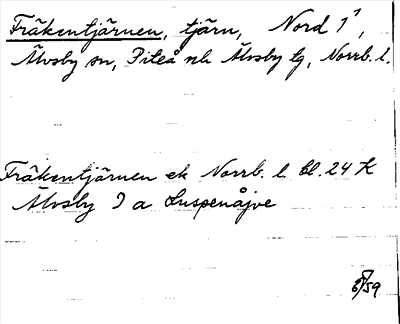 Fräkentjärnen, tjärn, Nord 1¹,
Älvsby sn, Piteå nk Älvsby tg, Norrb. l.
Fräkentjärnen ek Norrb. l bl. 24 K
Älvsby I a Luspenåjve
/59